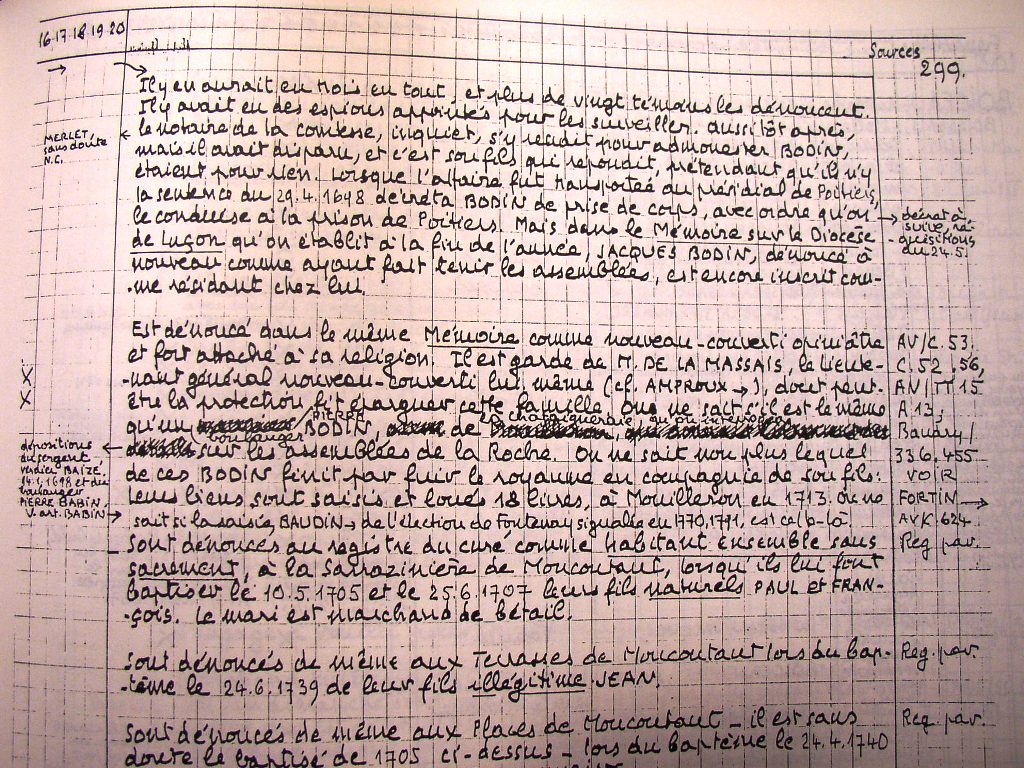 16.17.18.19.20
Sources
299.
Il y en aurait eu trois en tout, et plus de vingt témoins les dénoncent.
Il y avait eu des espions appointés pour les surveiller. Aussitôt après,
le notaire de la comtesse, inquiet, s'y rendit pour admonester BODIN,
mais il avait disparu, et c'est son fils qui répondit, prétendant qu'ils n'y
étaient pour rien. Lorsque l'affaire fut transportée au présidial de Poitiers,
la sentence du 29.4.1698 décréta BODIN de prise de corps, avec ordre qu'on
le conduise à la prison de Poitiers. Mais dans le Mémoire sur le Diocèse
de Luçon qu'on établit à la fin de l'année, JACQUES BODIN, dénoncé à
nouveau comme ayant fait tenir les assemblées, est encore inscrit com-
-me résidant chez lui.
MERLET,
sans doute
N.C.
→ décret à
suite, ré-
quisitions
du 24.5.
Est dénoncé dans le même Mémoire comme nouveau-converti opiniâtre
et fort attaché à sa religion. Il est garde de M. DE LA MASSAIS, le lieute-
-nant général nouveau-converti lui même (cf. AMPROUX →), dont peut-
être la protection fit épargner cette famille. On ne sait s'il est le même
qu'un PIERRE BODIN, boulanger de
sur les assemblées de la Roche. On ne sait non plus lequel
de ces BODIN finit par fuir le royaume en compagnie de son fils:
leurs biens sont saisis et loués 18 livres, à Mouilleron en 1713. On ne
sait si la saisie, BAUDIN → de l'élection de Fontenay signalée en 1770, 1791, est celle-là.
AV/C.53.
C.52,56,
AN/TT 15
A 13;
336,455
VOIR
FORTIN →
AVK.624
X
X
dépositions
du sergent
verdier BAIZE,
14.1.1698 et du
boulanger
PIERRE BABIN.
V. art. BABIN →
Sont dénoncés au registre du curé comme habitant ensemble sans
sacrement, à la Sarrazinière de Moncoutant, lorsqu'ils lui font
baptiser le 10.5.1705 et le 25.6.1707 leurs fils naturels PAUL et FRAN-
-çois. Le mari est marchand de bétail.
Reg. par.
Sont dénoncés de même aux Terrasses de Moncoutant lors du bap-
-tême le 24.6.1739 de leur fils illégitime JEAN.
Reg. par.
Sont dénoncés de même aux Places de Moncoutant – il est sans
doute le baptisé de 1705 ci-dessus – lors du baptême le 24.4.1740
Reg. par.